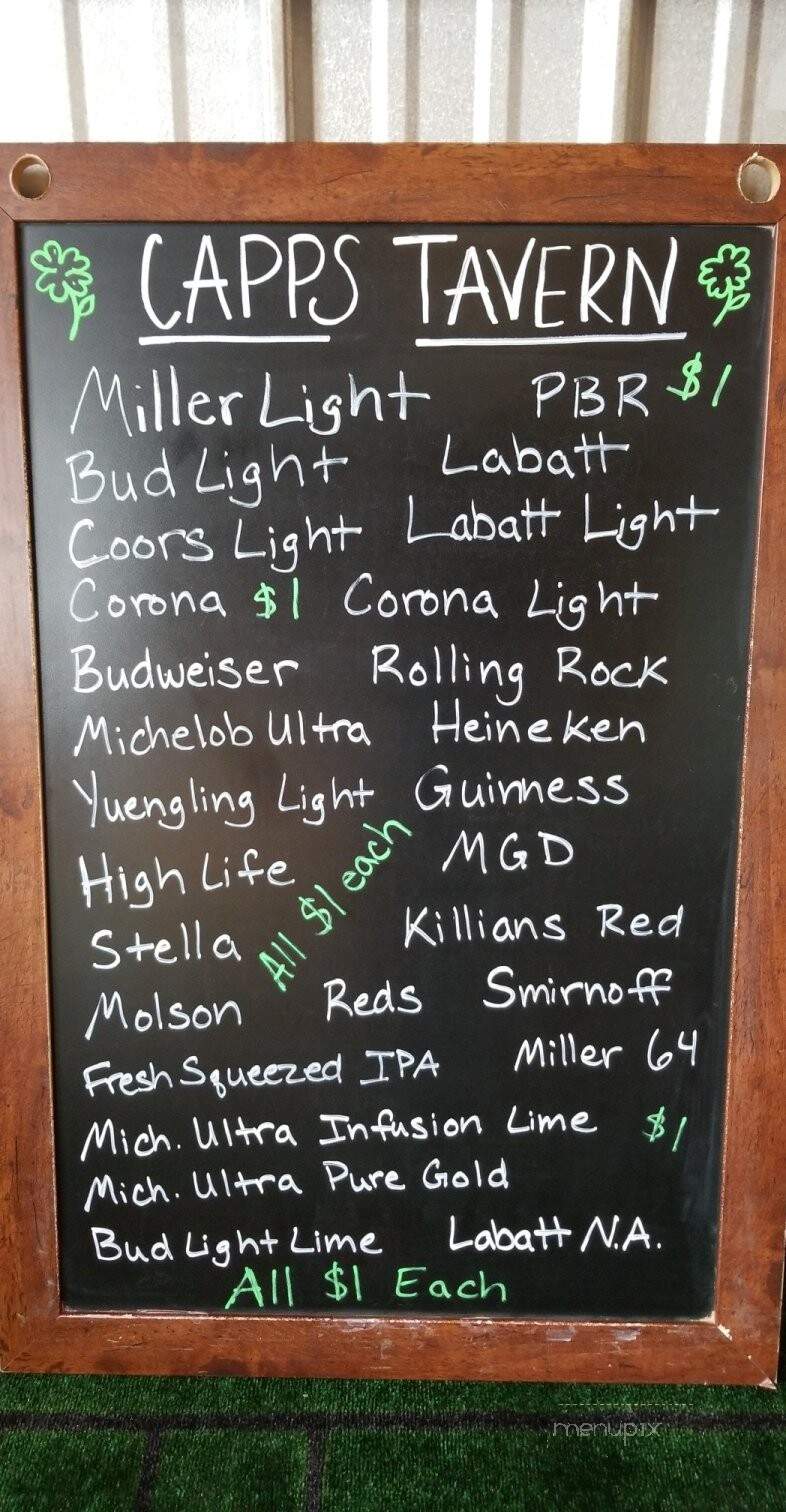 CAPPS TAVERN
Miller Light PBR $1
Bud Light Labatt
Coors Light Labatt Light
Corona $1 Corona Light
Budweiser Rolling Rock
Michelob Ultra Heineken
Yuengling Light Guinness
High Life MGD
All $1 each
Stella Killians Red
Molson Reds Smirnoff
Fresh Squeezed IPA Miller 64
Mich. Ultra Infusion Lime $1
Mich. Ultra Pure Gold
Bud Light Lime Labatt N.A.
All $1 Each
menupix